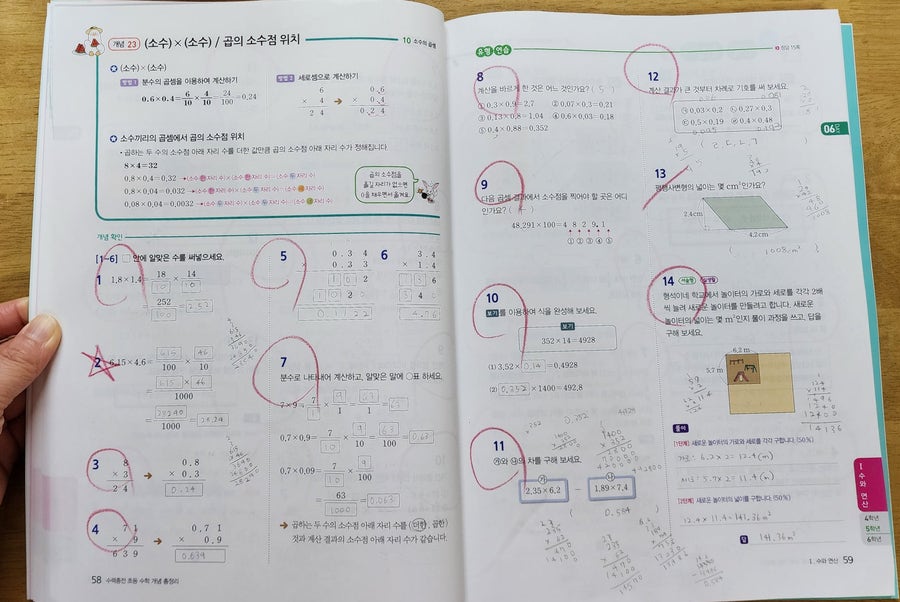 개념 23 (소수)×(소수) / 곱의 소수점 위치
10 소수의 곱셈
(소수)×(소수)
방법 1 분수의 곱셈을 이용하여 계산하기
0.6×0.4=6/10×4/10=24/100=0.24
방법 2 세로셈으로 계산하기
6 0.6
× 4 → × 0.4
2 4 0.2 4
소수끼리의 곱셈에서 곱의 소수점 위치
• 곱하는 두 수의 소수점 아래 자리 수를 더한 값만큼 곱의 소수점 아래 자리 수가 정해집니다.
8×4=32
0.8×0.4=0.32
0.8×0.04=0.032
0.08×0.04=0.0032
곱의 소수점을
옮길 자리가 없으면
0을 채우면서 옮겨요.
개념 확인
[1-6] □ 안에 알맞은 수를 써넣으세요.
1 1.8×1.4=18/10×14/10
=252/100=2.52
2 6.15×4.6=615/100×46/10
=615×46/1000
=28290/1000=28.29
3 8 0.8
× 3 → × 0.3
2 4 0.24
4 7 1 0.7 1
× 9 → × 0.9
6 3 9 0.639
5 0.3 4
× 0.3 3
1 0 2
1 0 2 0
0.1122
6 3.4
× 1.4
1 3 6
3 4 0
4.76
7
분수로 나타내어 계산하고, 알맞은 말에 ○표 하세요.
7×9=7/1×9/1=63/1=63
0.7×0.9=7/10×9/10=63/100=0.63
0.7×0.09=7/10×9/100
=63/1000=0.063
→ 곱하는 두 수의 소수점 아래 자리 수를 (더한, 곱한)
것과 계산 결과의 소수점 아래 자리 수가 같습니다.
58 수력충전 초등 수학 개념 총정리
유형 연습
정답 15쪽
8
계산을 바르게 한 것은 어느 것인가요? ( 5 )
① 0.3×0.9=2.7 ② 0.07×0.3=0.21
③ 0.13×0.8=1.04 ④ 0.6×0.03=0.18
⑤ 0.4×0.88=0.352
9
다음 곱셈 결과에서 소수점을 찍어야 할 곳은 어디
인가요? ( )
48.291×100=4 8 2 9.1
① ② ③ ④ ⑤
10
보기를 이용하여 식을 완성해 보세요.
보기
352×14=4928
(1) 3.52×0.14=0.4928
(2) 0.352×1400=492.8
11
㉮와 ㉯의 차를 구해 보세요.
㉮ ㉯
2.35×6.2 − 1.89×7.4
( 0.584 )
12
계산 결과가 큰 것부터 차례로 기호를 써 보세요.
㉠ 0.03×0.2 ㉡ 0.27×0.3
㉢ 0.5×0.19 ㉣ 0.4×0.48
( ㄹ, ㄷ, ㄴ, ㄱ )
13
평행사변형의 넓이는 몇 cm²인가요?
2.4cm
4.2cm
14 서술형 실생활
형석이네 학교에서 놀이터의 가로와 세로를 각각 2배
씩 늘려 새로운 놀이터를 만들려고 합니다. 새로운
놀이터의 넓이는 몇 m²인지 풀이 과정을 쓰고, 답을
구해 보세요.
6.2 m
5.7 m
풀이
[1단계] 새로운 놀이터의 가로와 세로를 각각 구합니다. (50%)
가로: 6.2×2=12.4(m)
세로: 5.7×2=11.4(m)
[2단계] 새로운 놀이터의 넓이를 구합니다. (50%)
12.4×11.4=141.36m²
답 141.36m²
06
I 수와 연산
4학년
5학년
6학년
I. 수와 연산 59